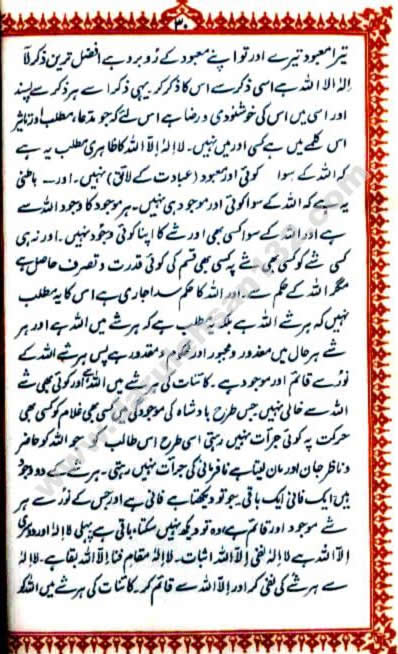 ۳۰
تیرا معبود تیرے اور تو اپنے معبود کے رُوبرو ہے افضل ترین ذکر لَآ
اِلٰہَ اِلا اللہ ہے اسی ذکر سے اس کا ذکر کر یہی ذکر اسے ہر ذکر سے پسند
اور اسی میں اس کی خوشنودی و رضا ہے اس لئے کہ جو مدعا، مطلب اور تاثیر
اس کلمے میں ہے کسی اور میں نہیں۔ لا اِلٰہَ اِلّا اللہ کا ظاہری مطلب یہ ہے
کہ اللہ کے سوا کوئی اور معبود (عبادت کے لائق) نہیں۔ اور۔۔ باطنی
یہ ہے کہ اللہ کے سوا کوئی اور موجود ہی نہیں۔ ہر موجود کا وجود اللہ سے
ہے اور اللہ کے سوا کسی بھی اور شے کا اپنا کوئی وجود نہیں۔ اور نہ ہی
کسی شے کو کسی بھی شے پہ کسی بھی قسم کی کوئی قدرت و تصرف حاصل ہے
مگر اللہ کے حکم سے۔ اور اللہ کا حکم سدا جاری ہے اس کا یہ مطلب
نہیں کہ ہر شے اللہ ہے بلکہ یہ مطلب ہے کہ ہر شے میں اللہ ہے اور ہر
شے ہر حال میں معذور و مجبور اور محکوم و مقدور ہے پس ہر شے اللہ کے
نور سے قائم اور موجود ہے۔ کائنات کی ہر شے میں اللہ ہے اور کوئی بھی شے
اللہ سے خالی نہیں جس طرح بادشاہ کی موجودگی میں کسی بھی غلام کو کسی بھی
حرکت پہ کوئی جرأت نہیں رہتی اسی طرح اس طالب کی جو اللہ کو حاضر
و ناظر جان اور مان لیتا ہے نافرمانی کی جرأت نہیں رہتی۔ ہر شے کے دو وجود
ہیں ایک فانی ایک باقی۔ جو تو دیکھتا ہے فانی ہے اور جس کے نور سے ہر
شے موجود اور قائم ہے وہ تو دیکھ نہیں سکتا، باقی ہے پہلی لا اِلٰہَ اور دوسری
اِلّا اللہ ہے لا اِلٰہَ نفی اِلّا اللہ اثبات۔ لا اِلٰہَ مقامِ فنا اِلّا اللہ بقا ہے۔ لا اِلٰہَ
سے ہر شے کی نفی کر اور اِلّا اللہ سے قائم کر۔ کائنات کی ہر شے میں اللہ کو